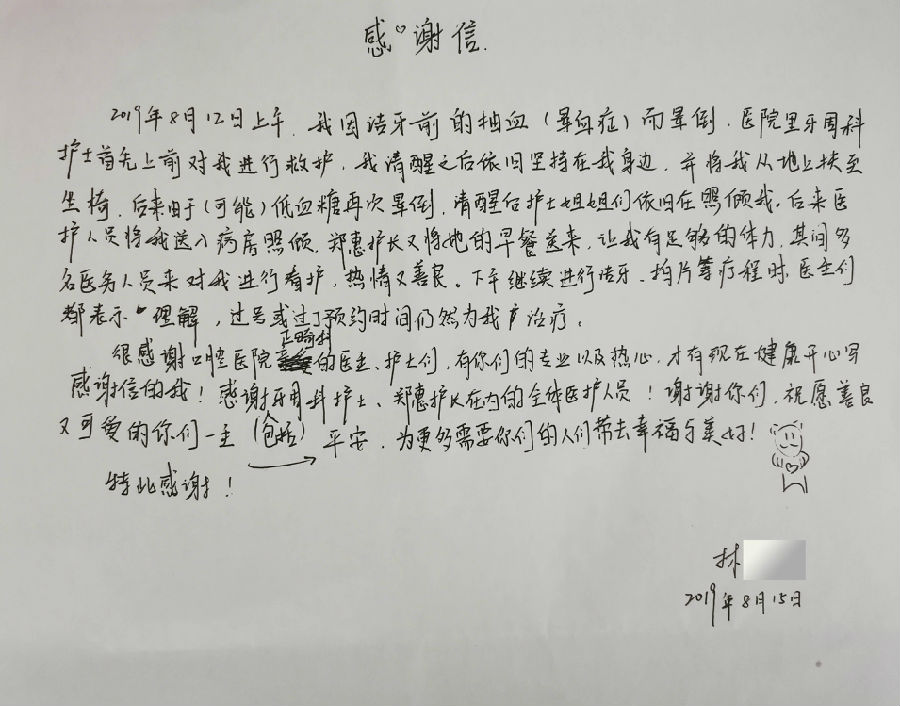 感谢信.
2019年8月12日上午,我因洁牙前的抽血(晕血症)而晕倒,医院里牙周科
护士首先上前对我进行救护,我清醒之后依旧坚持在我身边,并将我从地上扶至
坐椅,后来由于(可能)低血糖再次晕倒,清醒后护士姐姐们依旧在照顾我,后来医
护人员将我送入病房照顾.郑惠护长又将她的早餐送来,让我有足够的体力,其间多
名医务人员来对我进行看护,热情又善良、下午继续进行洁牙、拍片等疗程时,医生们
都表示理解,过号或过了预约时间仍然为我治疗。
正畸科
很感谢口腔医院的医生、护士们,有你们的专业以及热心,才有现在健康开心写
感谢信的我!感谢牙周科护士、郑惠护长在内的全体医护人员!谢谢你们,祝愿善良
又可爱的你们一生(包括)平安,为更多需要你们的人们带去幸福与美好!
特此感谢!
林
2019年8月15日